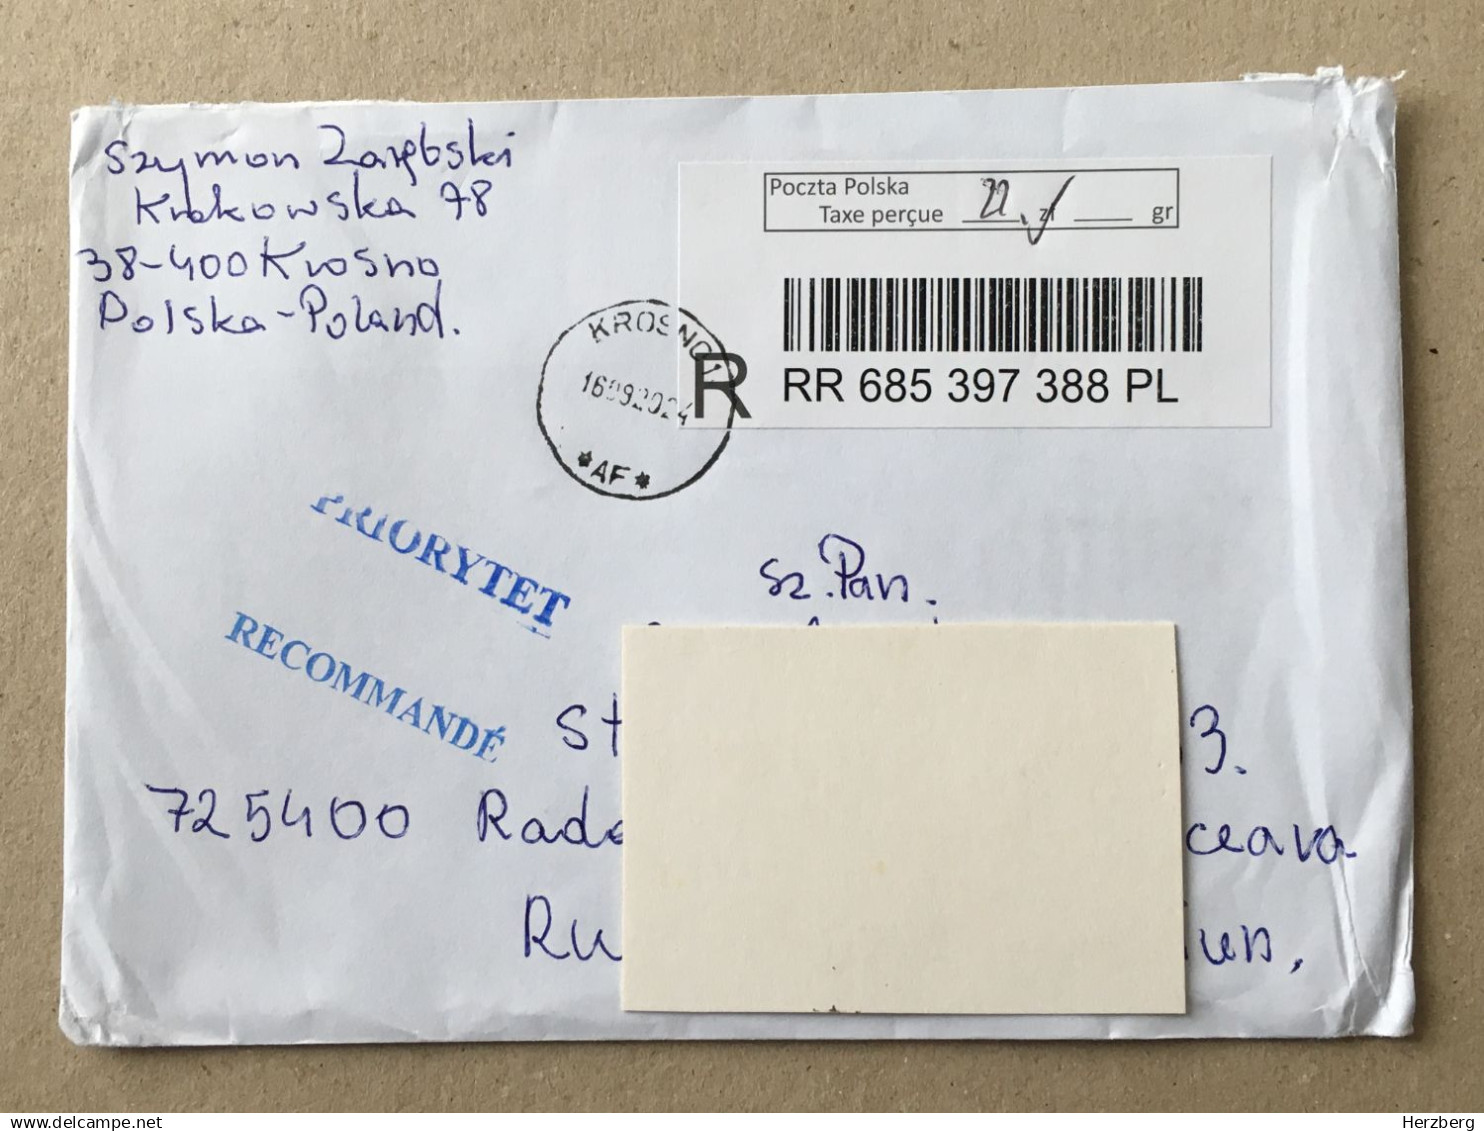 Szymon Zarębski
Krakowska 78
38-400 Krosno
Polska-Poland.
Poczta Polska
Taxe perçue 22, zł gr
R
RR 685 397 388 PL
KROSNO 1
16092024
*AF*
PRIORYTET
RECOMMANDÉ
Sz. Pan.
St 3.
725400 Rada ceava
Ru
delcampe.net
Herzberg